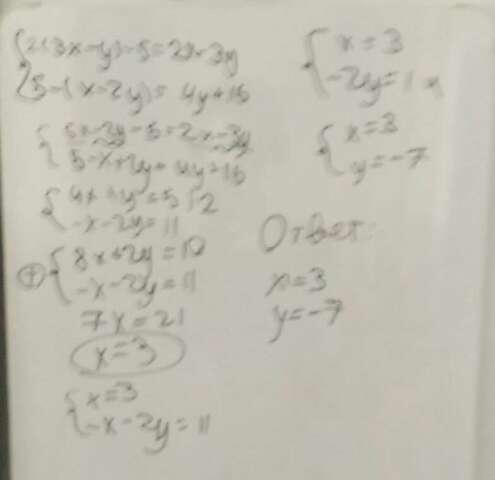 {2(3x-y)-5=2x-3y
5-(x-2y)=4y+16
{6x-2y-5=2x-3y
5-x+2y=4y+16
{4x+y=5 |·2
-x-2y=11
⊕{8x+2y=10
-x-2y=11
7x=21
x=3
{x=3
-x-2y=11
{x=3
-2y=14
{x=3
y=-7
Ответ:
x=3
y=-7